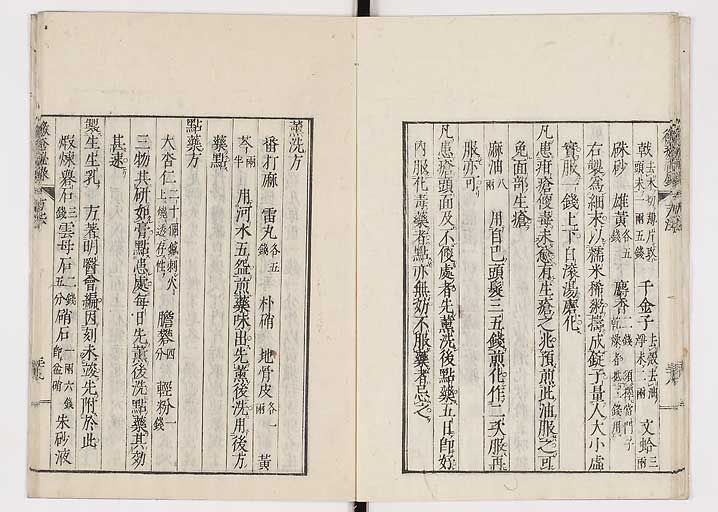 戟 去木切薄片焙頭末一兩五錢 千金子 去殼去油淨末二兩 文蛤 三兩
硃砂 雄黃 各五錢 麝香 二錢
右製爲細末以糯米稀粥擣成錠子量人大小虛
實服一錢上下白滾湯磨化
凡患疳瘡便毒未愈有生瘡之兆預煎此油服之可
免面部生瘡
麻油 八兩 用自巴頭髮三五錢煎化作二次服再
服亦可
凡患瘡頭面及不便處者先薰洗後點藥五日卽好
內服化毒藥者點亦無妨不服藥者忌之
薰洗方
番打麻 雷丸 各五錢 朴硝 地骨皮 各一兩 黃
芩 兩半 用河水五盌煎藥味出先薰後洗用後方
藥點
點藥方
大杏仁 二十個鍼刺火上燒透存性 膽礬 四分 輕粉 一錢
三物共研如膏點患處每日先薰後洗點藥其効
甚速
製生生乳 方著明醫會編因刻未竣先附於此
煆煉礬石 三錢 雲母石 二錢五分 硝石 一兩六錢卽盆硝 朱砂液